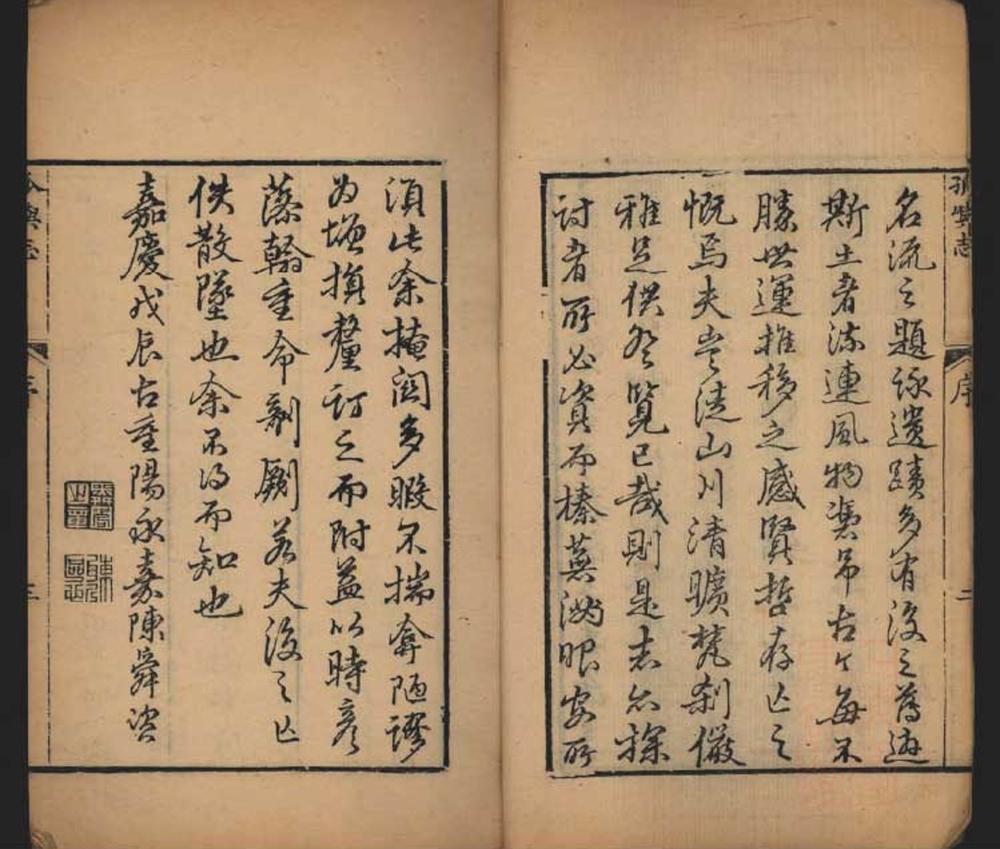 名流之題詠遺蹟多有後之為遊
斯土者流連風物憑吊古今每不
勝世運推移之感賢哲存亡之
慨焉夫豈徒山川清曠梵刹儼
雅足供登覽已哉則是志亦探
討者所必資而榛蕪滿眼安所
須此余掩關多暇不揣弇陋謬
為增損釐訂之而附益以時彥
藻翰重命剞劂若夫後之亡
佚散墜也余不得而知也
嘉慶戊辰古重陽永嘉陳舜咨
孤嶼志
序
二
三